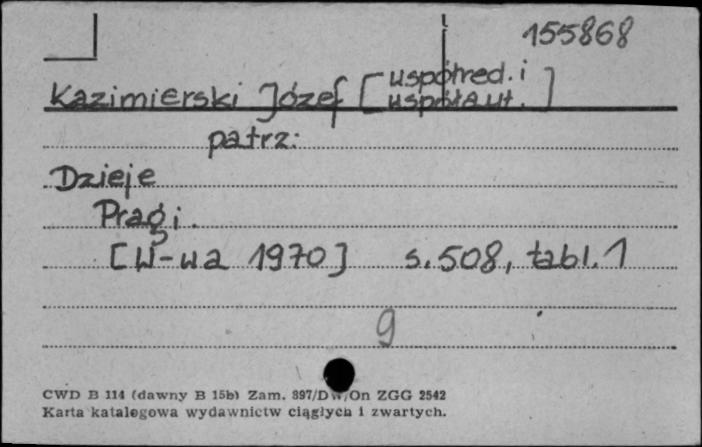 155868
Kazimierski Józef [współred. i współaut.]
patrz:
Dzieje
Pragi.
[W-wa 1970] s. 508, tabl. 1
9
CWD B 114 (dawny B 15b) Zam. 397/DW/On ZGG 2542
Karta katalogowa wydawnictw ciągłych i zwartych.